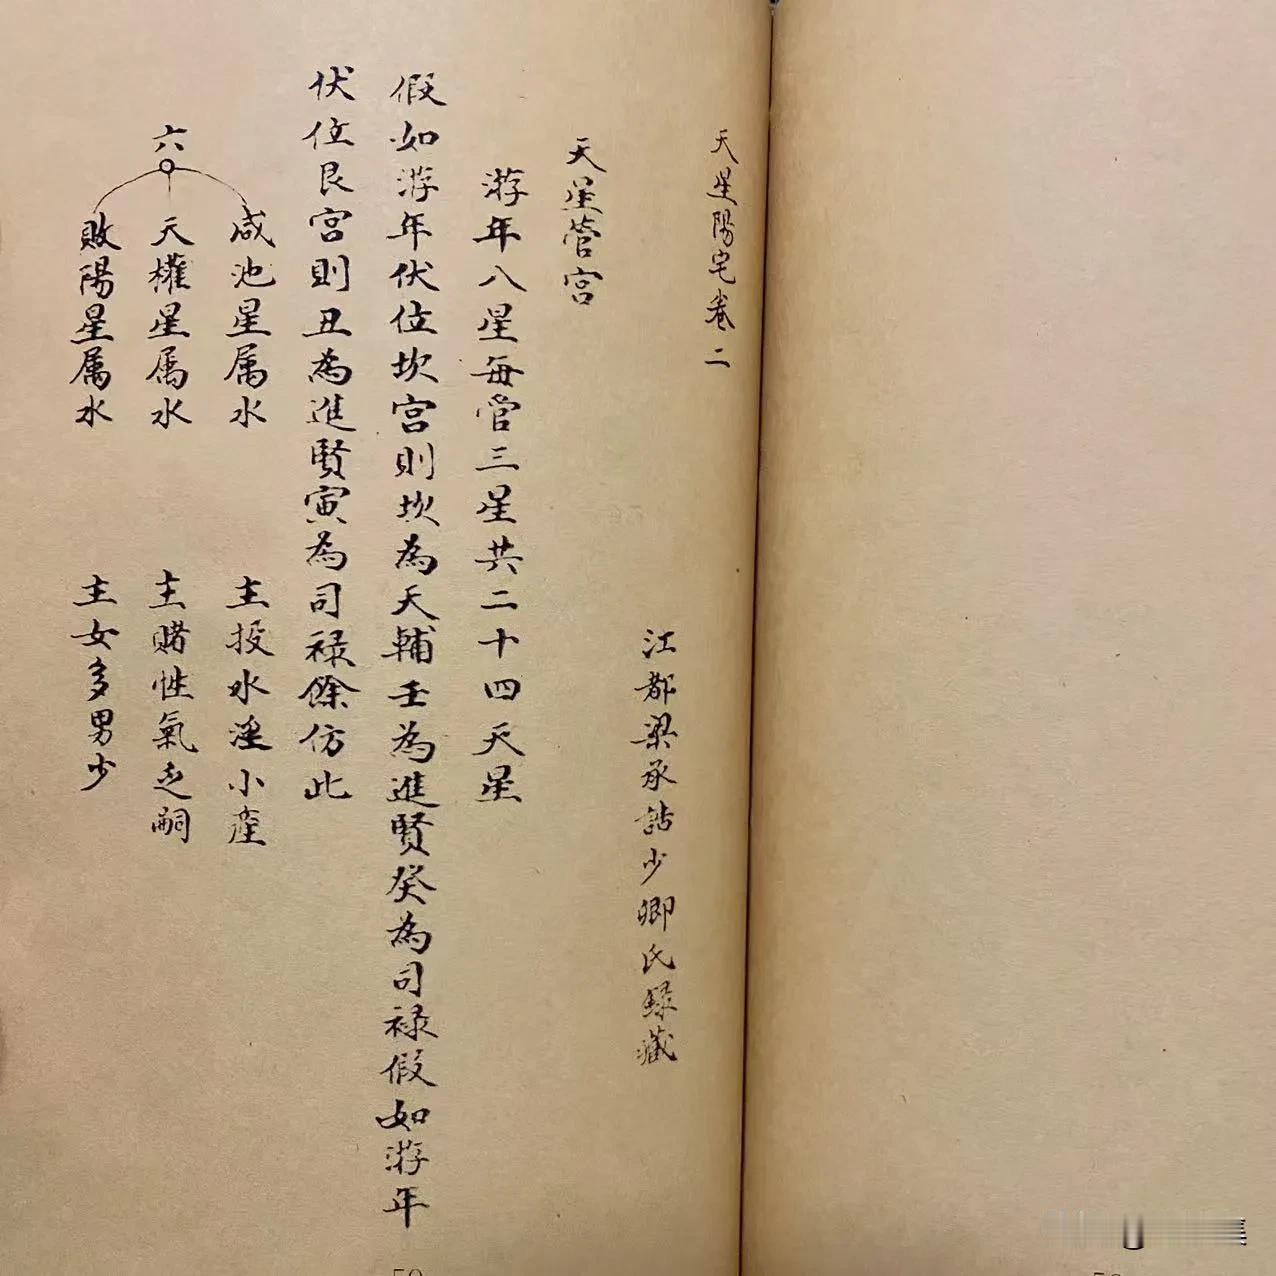 天星陽宅卷二
江都梁承誥少卿氏録藏
天星管宮
游年八星每管三星共二十四天星
假如游年伏位坎宮則坎為天輔壬為進賢癸為司禄假如游年
伏位艮宮則丑為進賢寅為司禄餘仿此
六
咸池星属水 主投水淫小産
天權星属水 主賭性氣乏嗣
敗陽星属水 主女多男少